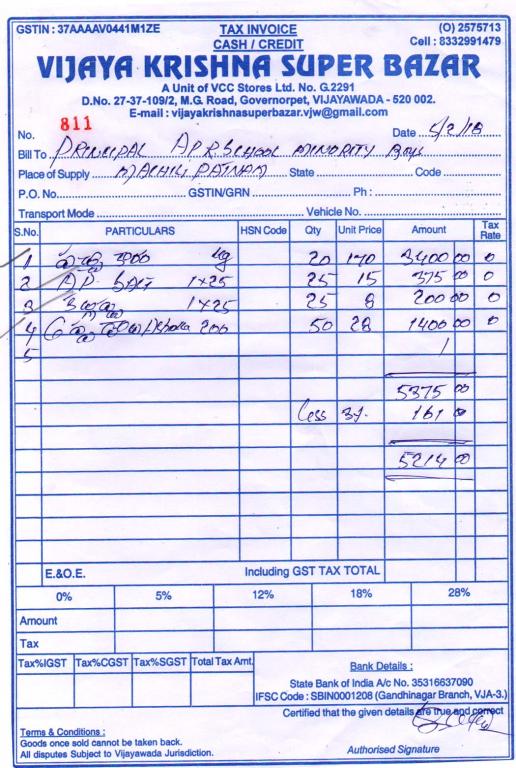 GSTIN : 37AAAAV0441M1ZE TAX INVOICE (O) 2575713
CASH / CREDIT Cell : 8332991479
VIJAYA KRISHNA SUPER BAZAR
A Unit of VCC Stores Ltd. No. G.2291
D.No. 27-37-109/2, M.G. Road, Governorpet, VIJAYAWADA - 520 002.
E-mail : vijayakrishnasuperbazar.vjw@gmail.com
No. 811 Date 5/2/18
Bill To PRINCIPAL APR SCHOOL MINORITY Boys
Place of Supply MACHILIPATNAM State Code
P.O. No. GSTIN/GRN Ph :
Transport Mode Vehicle No.
S.No. PARTICULARS HSN Code Qty Unit Price Amount Tax Rate
1 kg 20 170 3400 00 0
2 AP SALT 1x25 25 15 375 00 0
3 1x25 25 8 200 00 0
4 200 50 28 1400 00 0
5
5375 00
Less 3% 161 0
5214 00
E.&O.E. Including GST TAX TOTAL
0% 5% 12% 18% 28%
Amount
Tax
Tax%IGST Tax%CGST Tax%SGST Total Tax Amt.
Bank Details :
State Bank of India A/c No. 35316637090
IFSC Code : SBIN0001208 (Gandhinagar Branch, VJA-3.)
Certified that the given details are true and correct
Terms & Conditions :
Goods once sold cannot be taken back.
All disputes Subject to Vijayawada Jurisdiction.
Authorised Signature